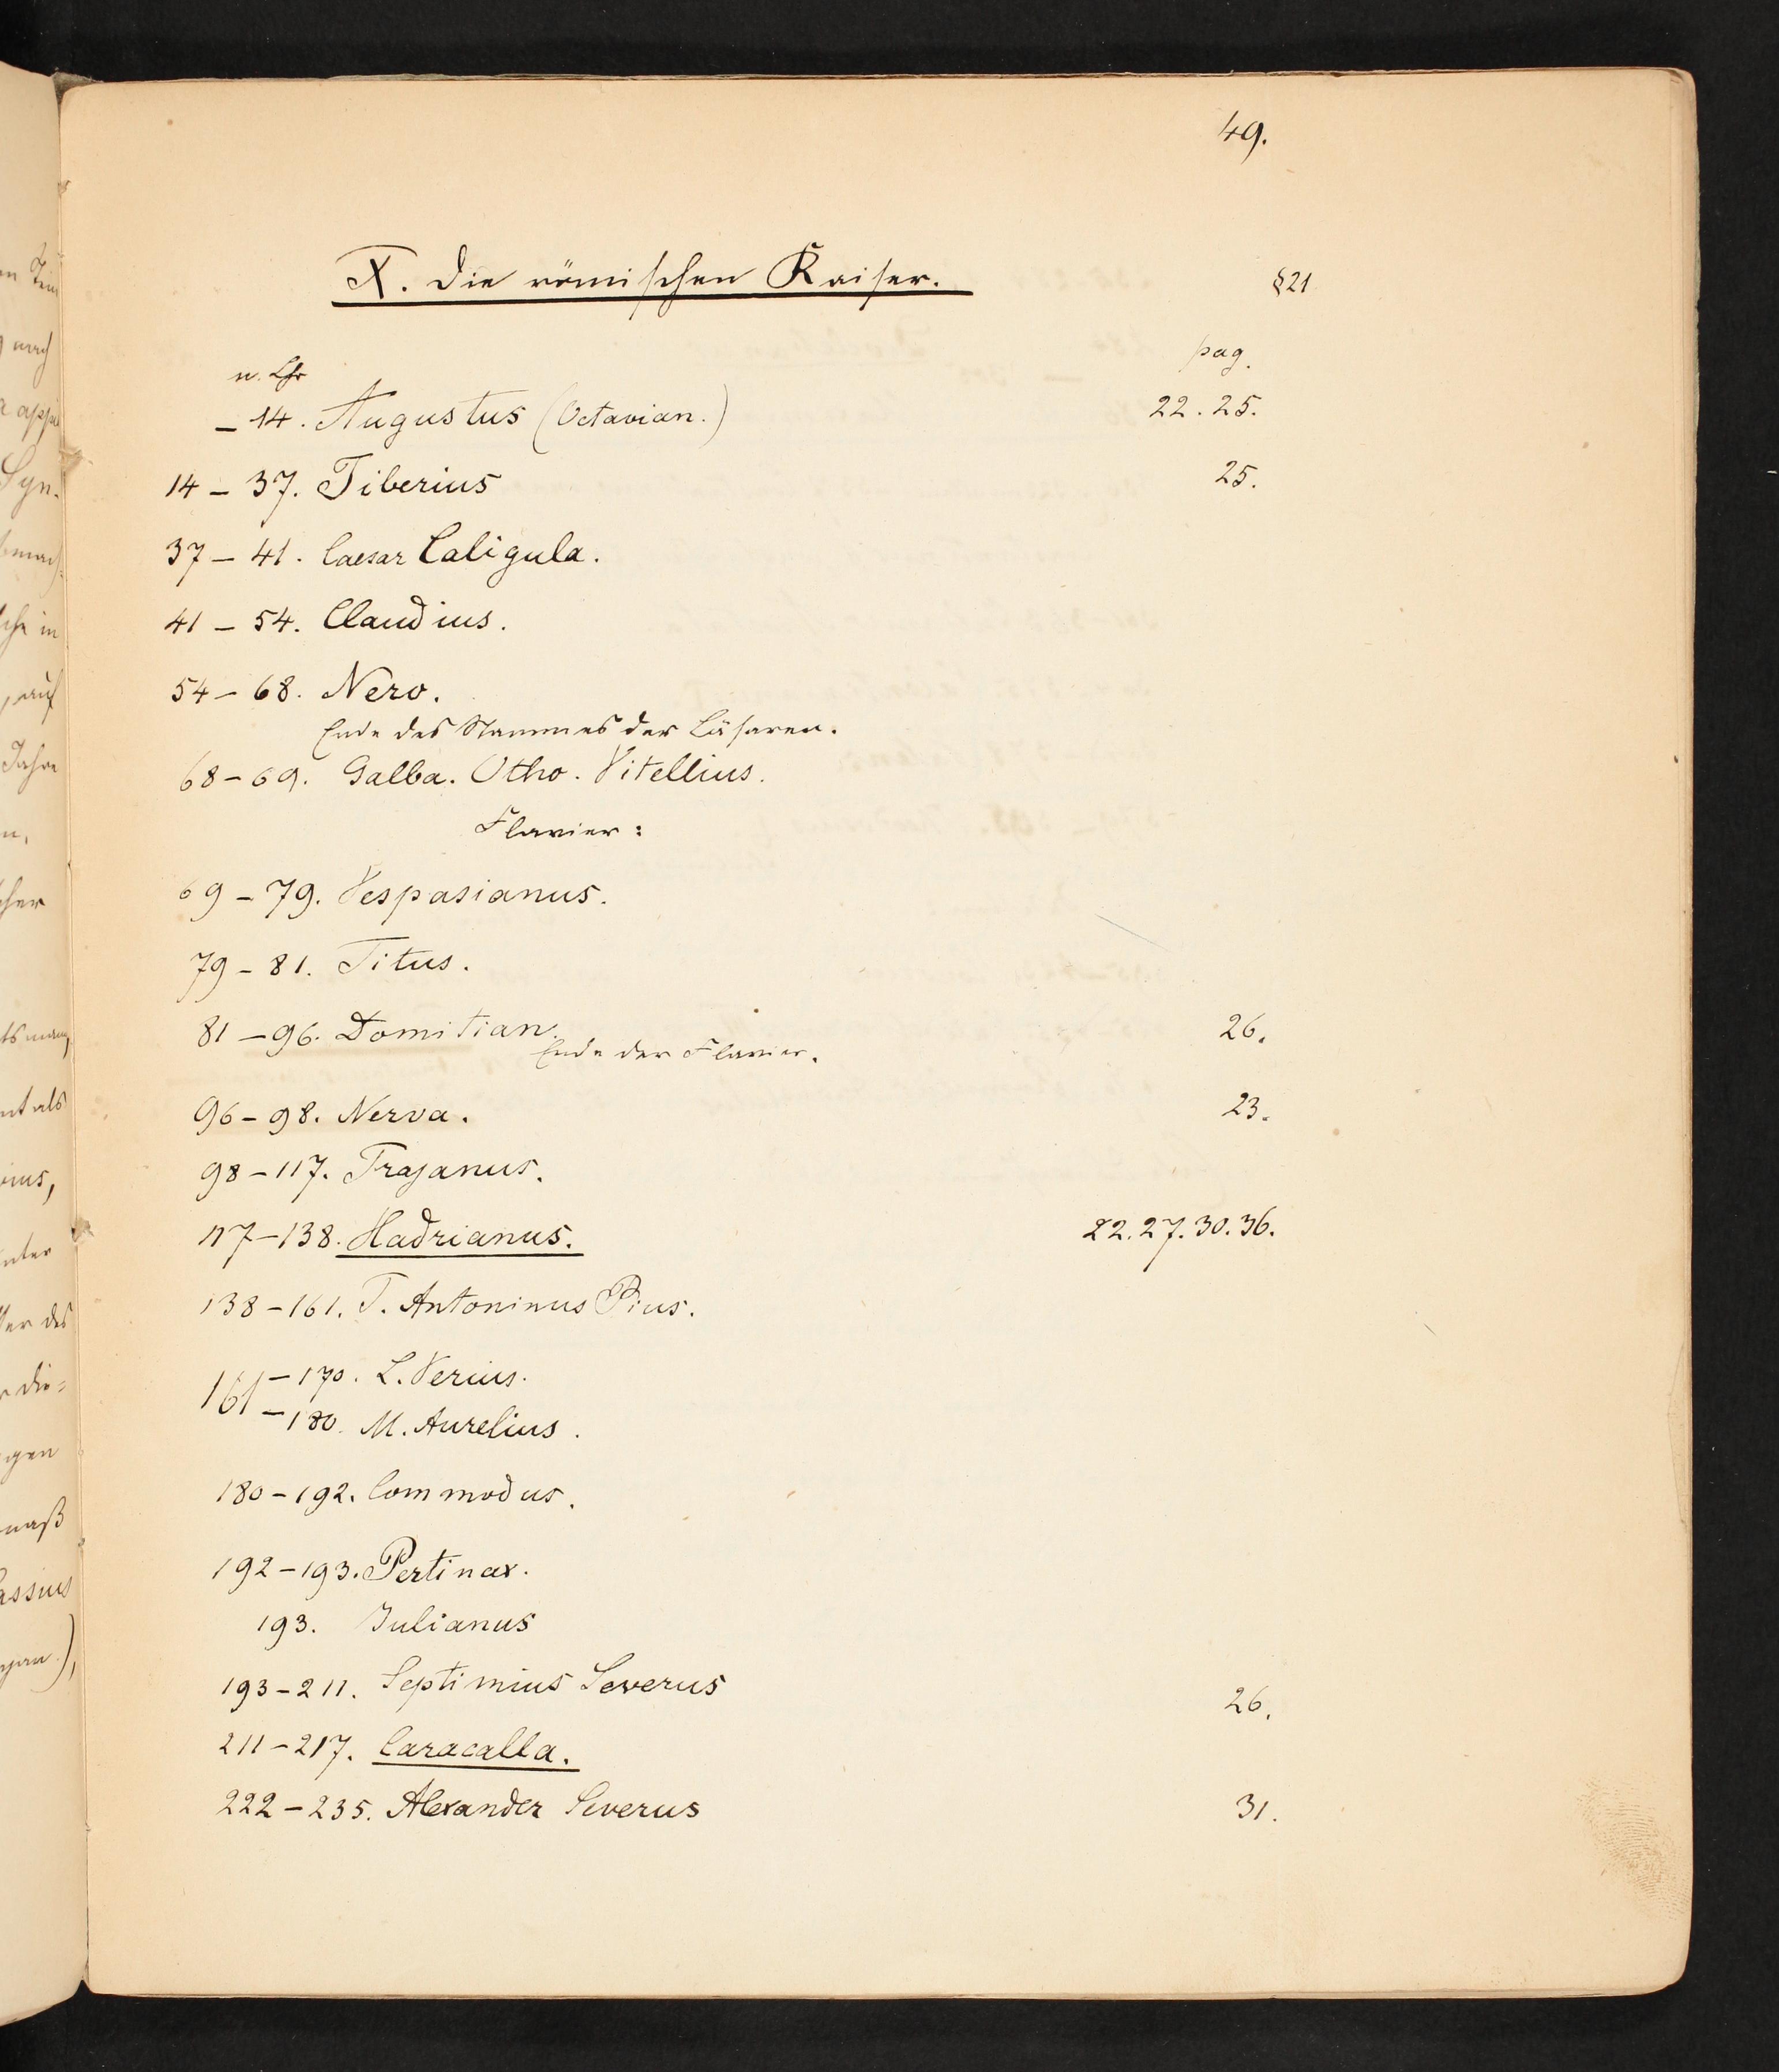 49.
X. Die römischen Kaiser. §21
n. Chr pag.
– 14. Augustus (Octavian.) 22. 25.
14 – 37. Tiberius 25.
37 – 41. Caesar Caligula.
41 – 54. Claudius.
54 – 68. Nero.
Ende des Stammes der Cäsaren.
68 – 69. Galba. Otho. Vitellius.
Flavier:
69 – 79. Vespasianus.
79 – 81. Titus.
81 – 96. Domitian. 26.
Ende der Flavier.
96 – 98. Nerva. 23.
98 – 117. Trajanus.
117 – 138. Hadrianus. 22. 27. 30. 36.
138 – 161. T. Antoninus Pius.
161 – 170. L. Verius.
– 180. M. Aurelius.
180 – 192. Commodus.
192 – 193. Pertinax.
193. Julianus
193 – 211. Septimius Severus 26.
211 – 217. Caracalla.
222 – 235. Alexander Severus 31.